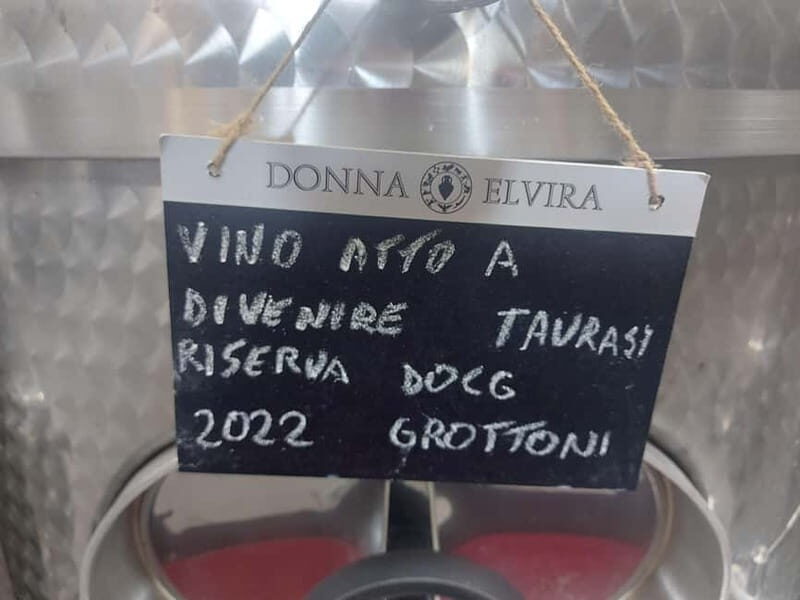 DONNA ELVIRA
VINO ATTO A
DIVENIRE TAURASI
RISERVA DOCG
2022 GROTTONI